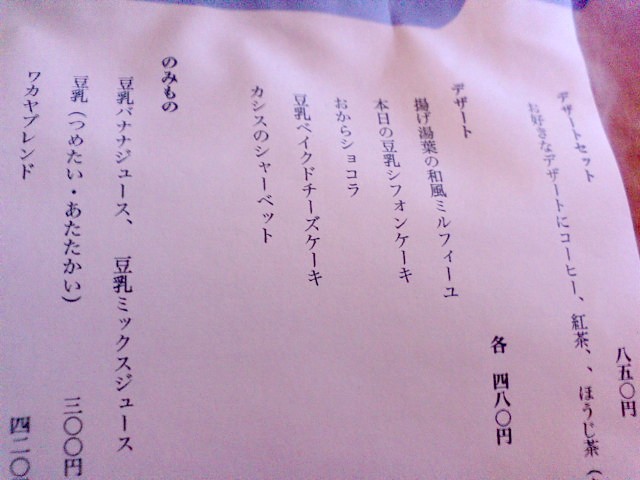 デザートセット 八五〇円
お好きなデザートにコーヒー、紅茶、、ほうじ茶（
デザート 各 四八〇円
揚げ湯葉の和風ミルフィーユ
本日の豆乳シフォンケーキ
おからショコラ
豆乳ベイクドチーズケーキ
カシスのシャーベット
のみもの
豆乳バナナジュース、 豆乳ミックスジュース
豆乳（つめたい・あたたかい） 三〇〇円
ワカヤブレンド 四二〇